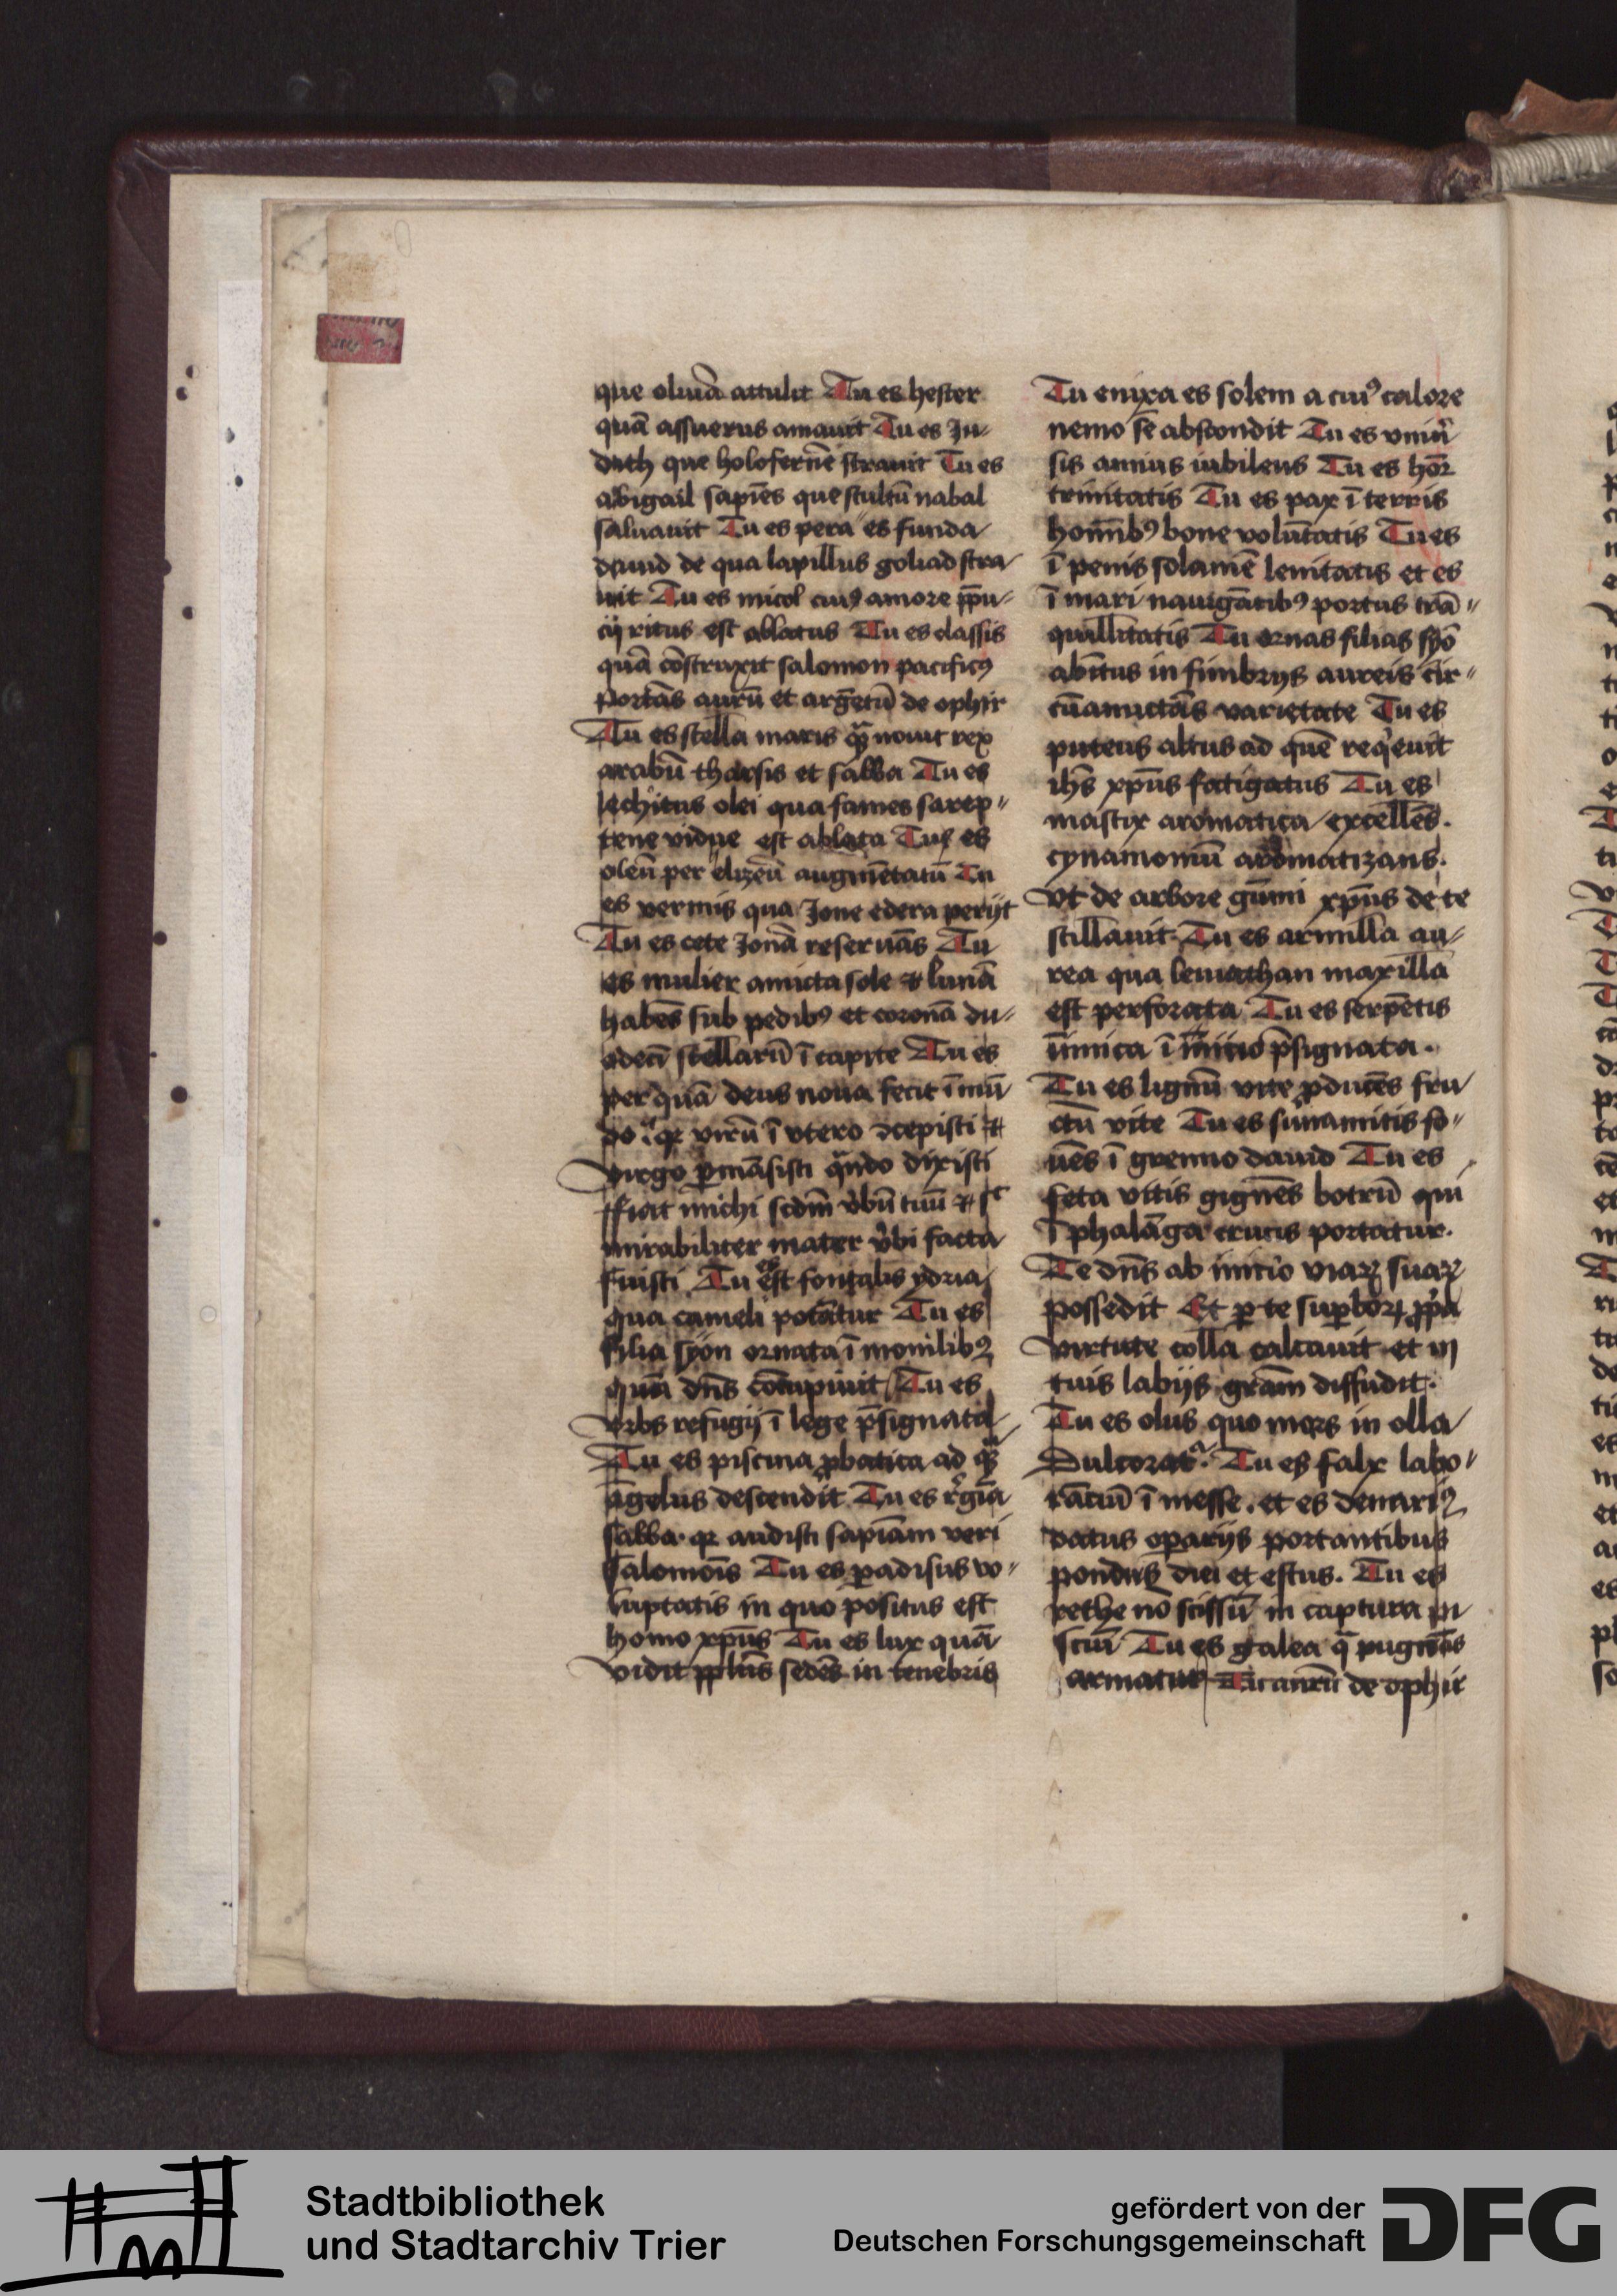 que oliuā attulit Tu es hester
quā assuerus amauit Tu es Ju-
dith que holofernē strauit Tu es
abigail sapiēs que stultū nabal
saluauit Tu es pera es funda
dauid de qua lapillus goliad stra
uit Tu es micol cuiꝯ amore p̄pu-
cij ritus est ablatus Tu es classis
quā cōstruxit salomon pacificꝯ
Portās aurū et argētū de ophir
Tu es stella maris quā nouit rex
arabū tharsis et sabba Tu es
lechitus olei qua fames sarep-
tene vidue est ablata Tu es
oleū per elizeū augmētatū Tu
es vermis qua Jone edera perijt
Tu es cete Jonā reseruās Tu
es mulier amicta sole et lunā
habēs sub pedibꝯ et coronā du-
odecī stellarū ī capite Tu es
per quā deus noua fecit ī mū
do qr virū ī vtero ꝯcepisti et
virgo ꝑmāsisti quādo dixisti
ffiat michi scdm̄ v̾bū tuū et sic
mirabiliter mater v̾bi facta
fuisti Tu es est fontalis ydria
qua cameli potātur Tu es
filia syon ornata ī monilibꝯ
quā dn̄s cōcupiuit Tu es
vrbs refugij ī lege p̄signata
Tu es piscina ꝓbatica ad quā
āgelus descendit Tu es r̾gia
sabba qr audisti sapiām veri
Salomōis Tu es ꝑadisus vo-
luptatis in quo positus est
homo xp̄us Tu es lux quā
vidit pp̄lus sedēs in tenebris
Tu enixa es solem a cuiꝯ calore
nemo se abscondit Tu es vniu̾
sis annus iubileus Tu es hōr
trinitatis Tu es pax ī terris
hom̄ibꝯ bone volūtatis Tu es
ī penis solamē lenitatis et es
ī mari nauigātibꝯ portus trā-
quillitatis Tu ornas filias syō
abitus in fimbrijs aureis cir-
cūamictās varietate Tu es
puteus altus ad quē req̾euit
ihs xp̄us fatigatus Tu es
mastix aromatica excellēs.
cynamomū aromatizans.
Vt de arbore gūmi xp̄us de te
stillauit Tu es armilla au-
rea qua leuiathan maxilla
est perforata Tu es serpētis
īimica ī inicio p̄signata.
Tu es lignū vite ꝓducēs fru
ctū vite Tu es sunamitis fo-
uēs ī gremio dauid Tu es
feta vitis gignēs botrū qui
ī phalāga crucis portatur.
Te dn̄s ab inicio viaꝝ suaꝝ
possedit Et ꝑ te suꝑboꝝ ꝓpa
virtute colla calcauit et in
tuis labijs grām diffudit.
Tu es olus quo mors in olla
Dulcorat. Tu es falx labo-
rātiū ī messe. et es denariꝯ
datus oꝑarijs portantibus
pondus diei et estus. Tu es
rethe nō scissū in captura pi
sciū Tu es galea q̄ pugnās
armatur Tu aurū de ophir
Stadtbibliothek
und Stadtarchiv Trier
gefördert von der
Deutschen Forschungsgemeinschaft
DFG